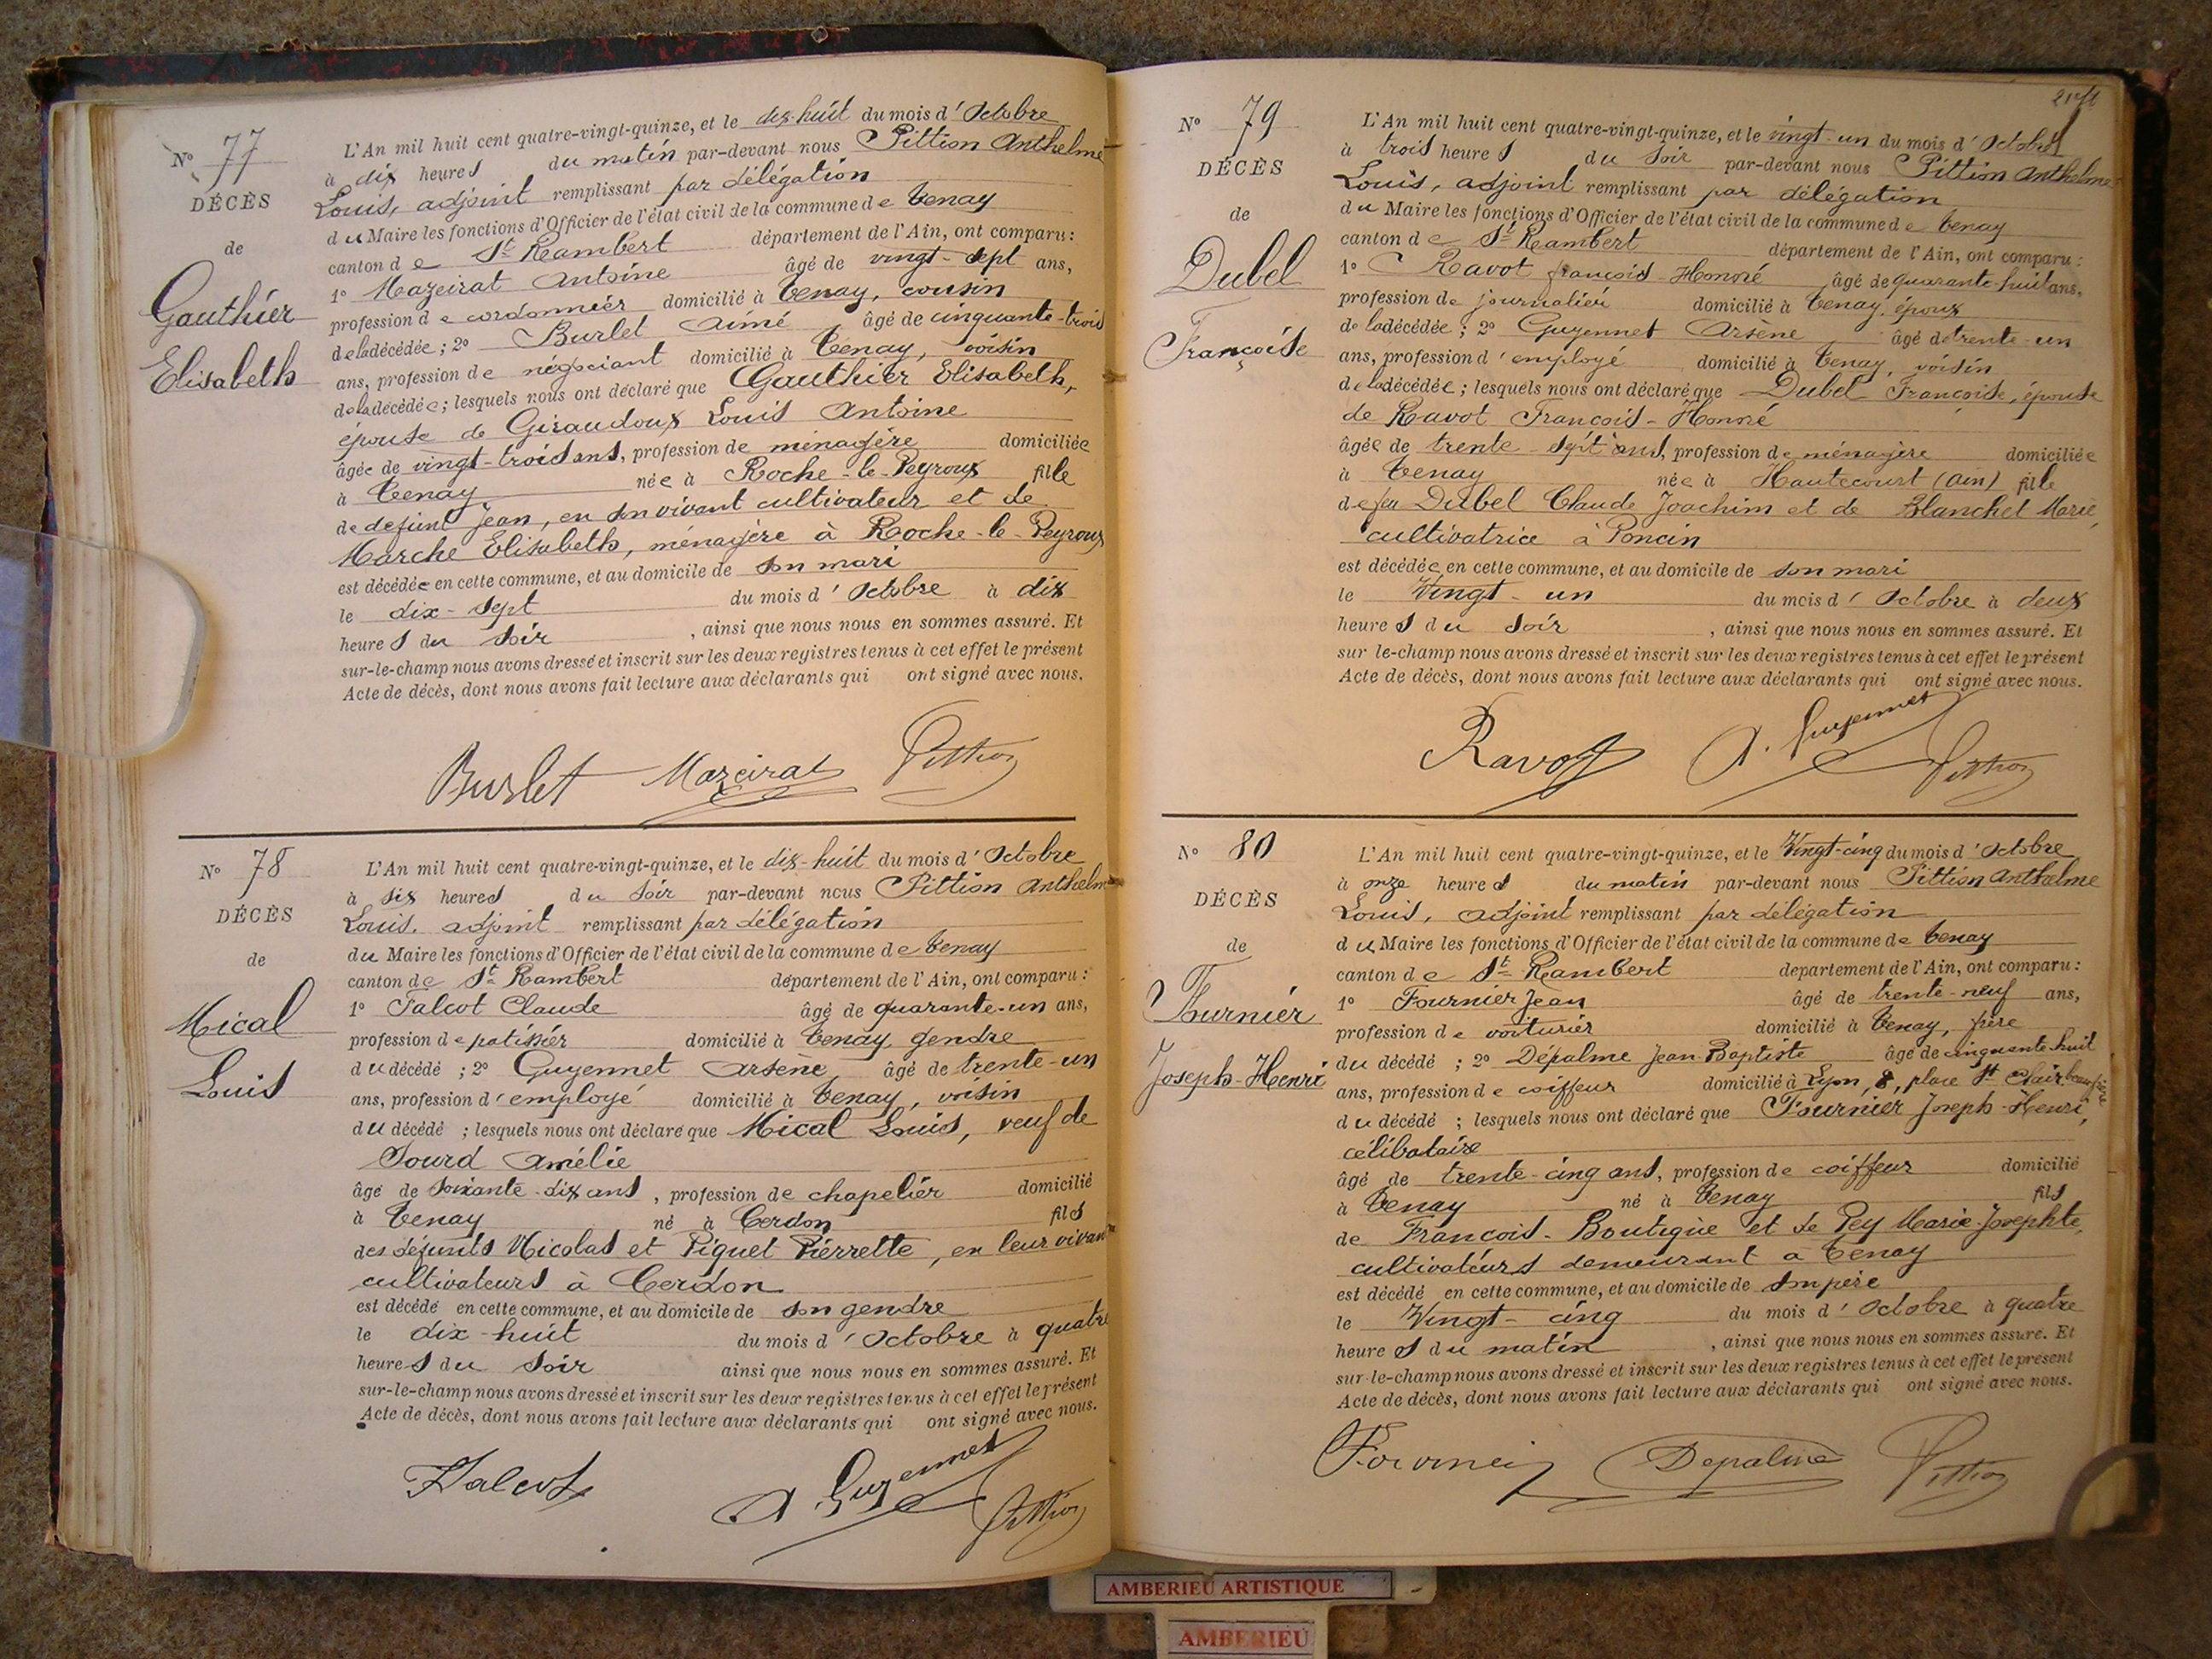 N° 77
DÉCÈS
de
Gauthier
Elisabeth
L'An mil huit cent quatre-vingt-quinze, et le dix-huit du mois d'Octobre
à dix heures du matin par-devant nous Pittion Anthelme
Louis, adjoint remplissant par délégation
du Maire les fonctions d'Officier de l'état civil de la commune de Tenay
canton de St Rambert département de l'Ain, ont comparu:
1° Mazeirat Antoine âgé de vingt-sept ans,
profession de cordonnier domicilié à Tenay, cousin
de la décédée; 2° Burlet Aimé âgé de cinquante-trois
ans, profession de négociant domicilié à Tenay, voisin
de la décédée; lesquels nous ont déclaré que Gauthier Elisabeth,
épouse de Giraudoux Louis Antoine
âgée de vingt-trois ans, profession de ménagère domiciliée
à Tenay née à Roche-le-Peyroux fille
de defunt Jean, en son vivant cultivateur et de
Marche Elisabeth, ménagère à Roche-le-Peyroux
est décédée en cette commune, et au domicile de son mari
le dix-sept du mois d'Octobre à dix
heures du soir, ainsi que nous nous en sommes assuré. Et
sur-le-champ nous avons dressé et inscrit sur les deux registres tenus à cet effet le présent
Acte de décès, dont nous avons fait lecture aux déclarants qui ont signé avec nous.
Burlet Mazeirat Pittion
N° 78
DÉCÈS
de
Mical
Louis
L'An mil huit cent quatre-vingt-quinze, et le dix-huit du mois d'Octobre
à six heures du soir par-devant nous Pittion Anthelme
Louis, adjoint remplissant par délégation
du Maire les fonctions d'Officier de l'état civil de la commune de Tenay
canton de St Rambert département de l'Ain, ont comparu:
1° Falcot Claude âgé de quarante-un ans,
profession de patissier domicilié à Tenay, gendre
du décédé; 2° Guyennet Arsène âgé de trente-un
ans, profession d'employé domicilié à Tenay, voisin
du décédé; lesquels nous ont déclaré que Mical Louis, veuf de
Sourd Amélie
âgé de soixante-dix ans, profession de chapelier domicilié
à Tenay né à Cerdon fils
des défunts Nicolas et Piquet Pierrette, en leur vivant
cultivateurs à Cerdon
est décédé en cette commune, et au domicile de son gendre
le dix-huit du mois d'Octobre à quatre
heures du soir ainsi que nous nous en sommes assuré. Et
sur-le-champ nous avons dressé et inscrit sur les deux registres tenus à cet effet le présent
Acte de décès, dont nous avons fait lecture aux déclarants qui ont signé avec nous.
Falcot A. Guyennet Pittion
N° 79
DÉCÈS
de
Dubel
Françoise
L'An mil huit cent quatre-vingt-quinze, et le vingt-un du mois d'Octobre
à trois heures du soir par-devant nous Pittion Anthelme
Louis, adjoint remplissant par délégation
du Maire les fonctions d'Officier de l'état civil de la commune de Tenay
canton de St Rambert département de l'Ain, ont comparu:
1° Ravot François-Honoré âgé de quarante-huit ans,
profession de journalier domicilié à Tenay, époux
de la décédée; 2° Guyennet Arsène âgé de trente-un
ans, profession d'employé domicilié à Tenay, voisin
de la décédée; lesquels nous ont déclaré que Dubel Françoise, épouse
de Ravot François-Honoré
âgée de trente-sept ans, profession de ménagère domiciliée
à Tenay née à Hautecourt (Ain) fille
de feu Dubel Claude Joachim et de Blanchet Marie,
cultivatrice à Poncin
est décédée en cette commune, et au domicile de son mari
le Vingt-un du mois d'Octobre à deux
heures du soir, ainsi que nous nous en sommes assuré. Et
sur le-champ nous avons dressé et inscrit sur les deux registres tenus à cet effet le présent
Acte de décès, dont nous avons fait lecture aux déclarants qui ont signé avec nous.
Ravot A. Guyennet Pittion
N° 80
DÉCÈS
de
Fournier
Joseph-Henri
L'An mil huit cent quatre-vingt-quinze, et le Vingt-cinq du mois d'Octobre
à onze heures du matin par-devant nous Pittion Anthelme
Louis, adjoint remplissant par délégation
du Maire les fonctions d'Officier de l'état civil de la commune de Tenay
canton de St Rambert departement de l'Ain, ont comparu:
1° Fournier Jean âgé de trente-neuf ans,
profession de voiturier domicilié à Tenay, frère
du décédé; 2° Dépalme Jean-Baptiste âgé de cinquante-huit
ans, profession de coiffeur domicilié à Lyon, 8, place St Clair beau-frère
du décédé; lesquels nous ont déclaré que Fournier Joseph-Henri,
célibataire
âgé de trente-cinq ans, profession de coiffeur domicilié
à Tenay né à Tenay fils
de François-Boutique et de Pey Marie-Josephte,
cultivateurs demeurant à Tenay
est décédé en cette commune, et au domicile de son père
le Vingt-cinq du mois d'Octobre à quatre
heures du matin, ainsi que nous nous en sommes assuré. Et
sur-le-champ nous avons dressé et inscrit sur les deux registres tenus à cet effet le présent
Acte de décès, dont nous avons fait lecture aux déclarants qui ont signé avec nous.
Fournier Depalme Pittion
AMBERIEU ARTISTIQUE
AMBERIEU